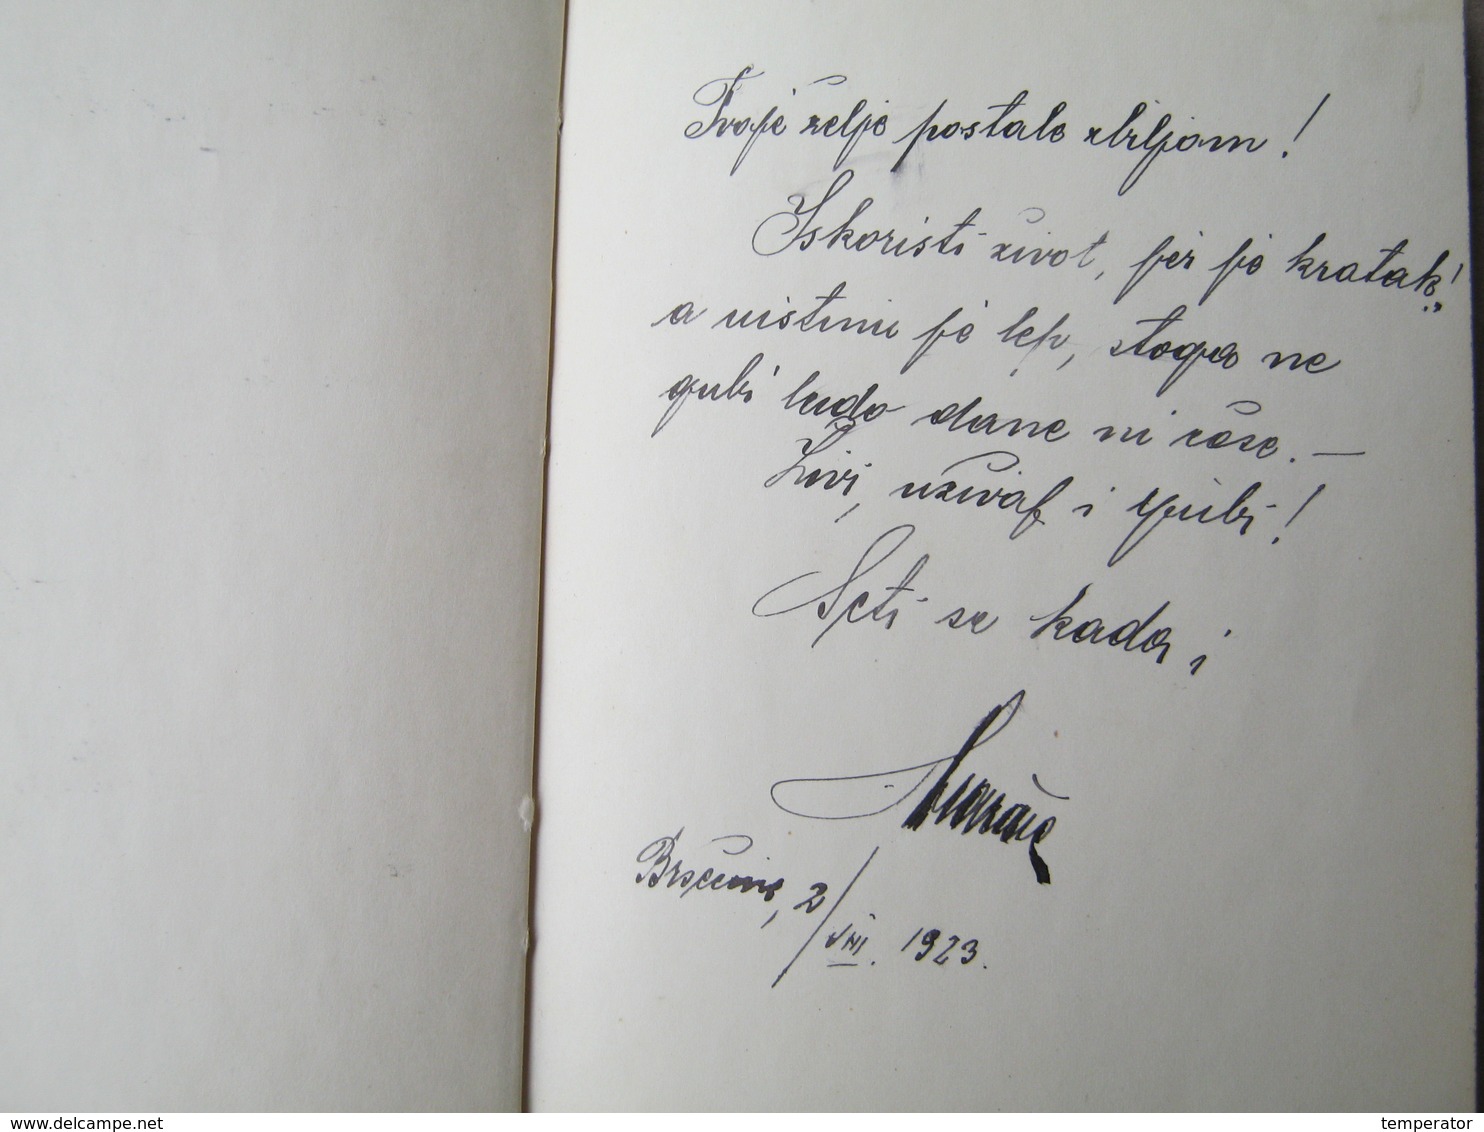 Tvoje želje postale zbiljom!
Iskoristi život, jer je kratak!
a uistinu je lep, stoga ne
gubi ludo dane ni čase. —
Živi, uživaj i ljubi!
Seti se kada i
2/VIII. 1923.
delcampe.net
temperator